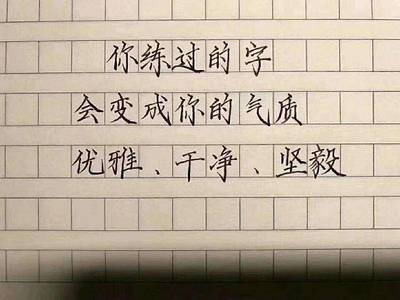 你练过的字
会变成你的气质
优雅、干净、坚毅